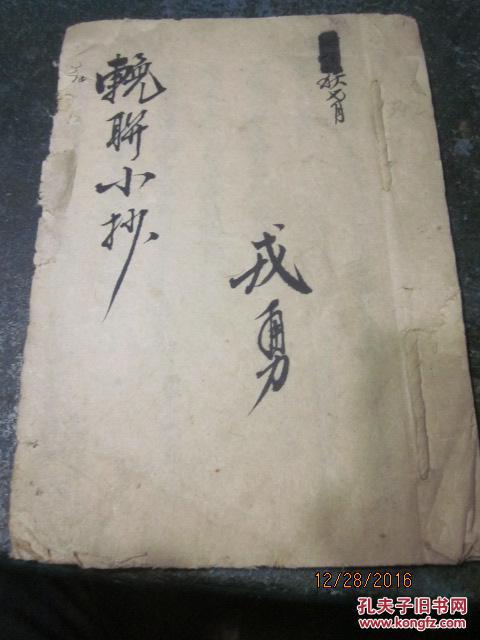 秋七月
戎勇
輓聯小抄
12/28/2016
孔夫子旧书网
www.kongfz.com